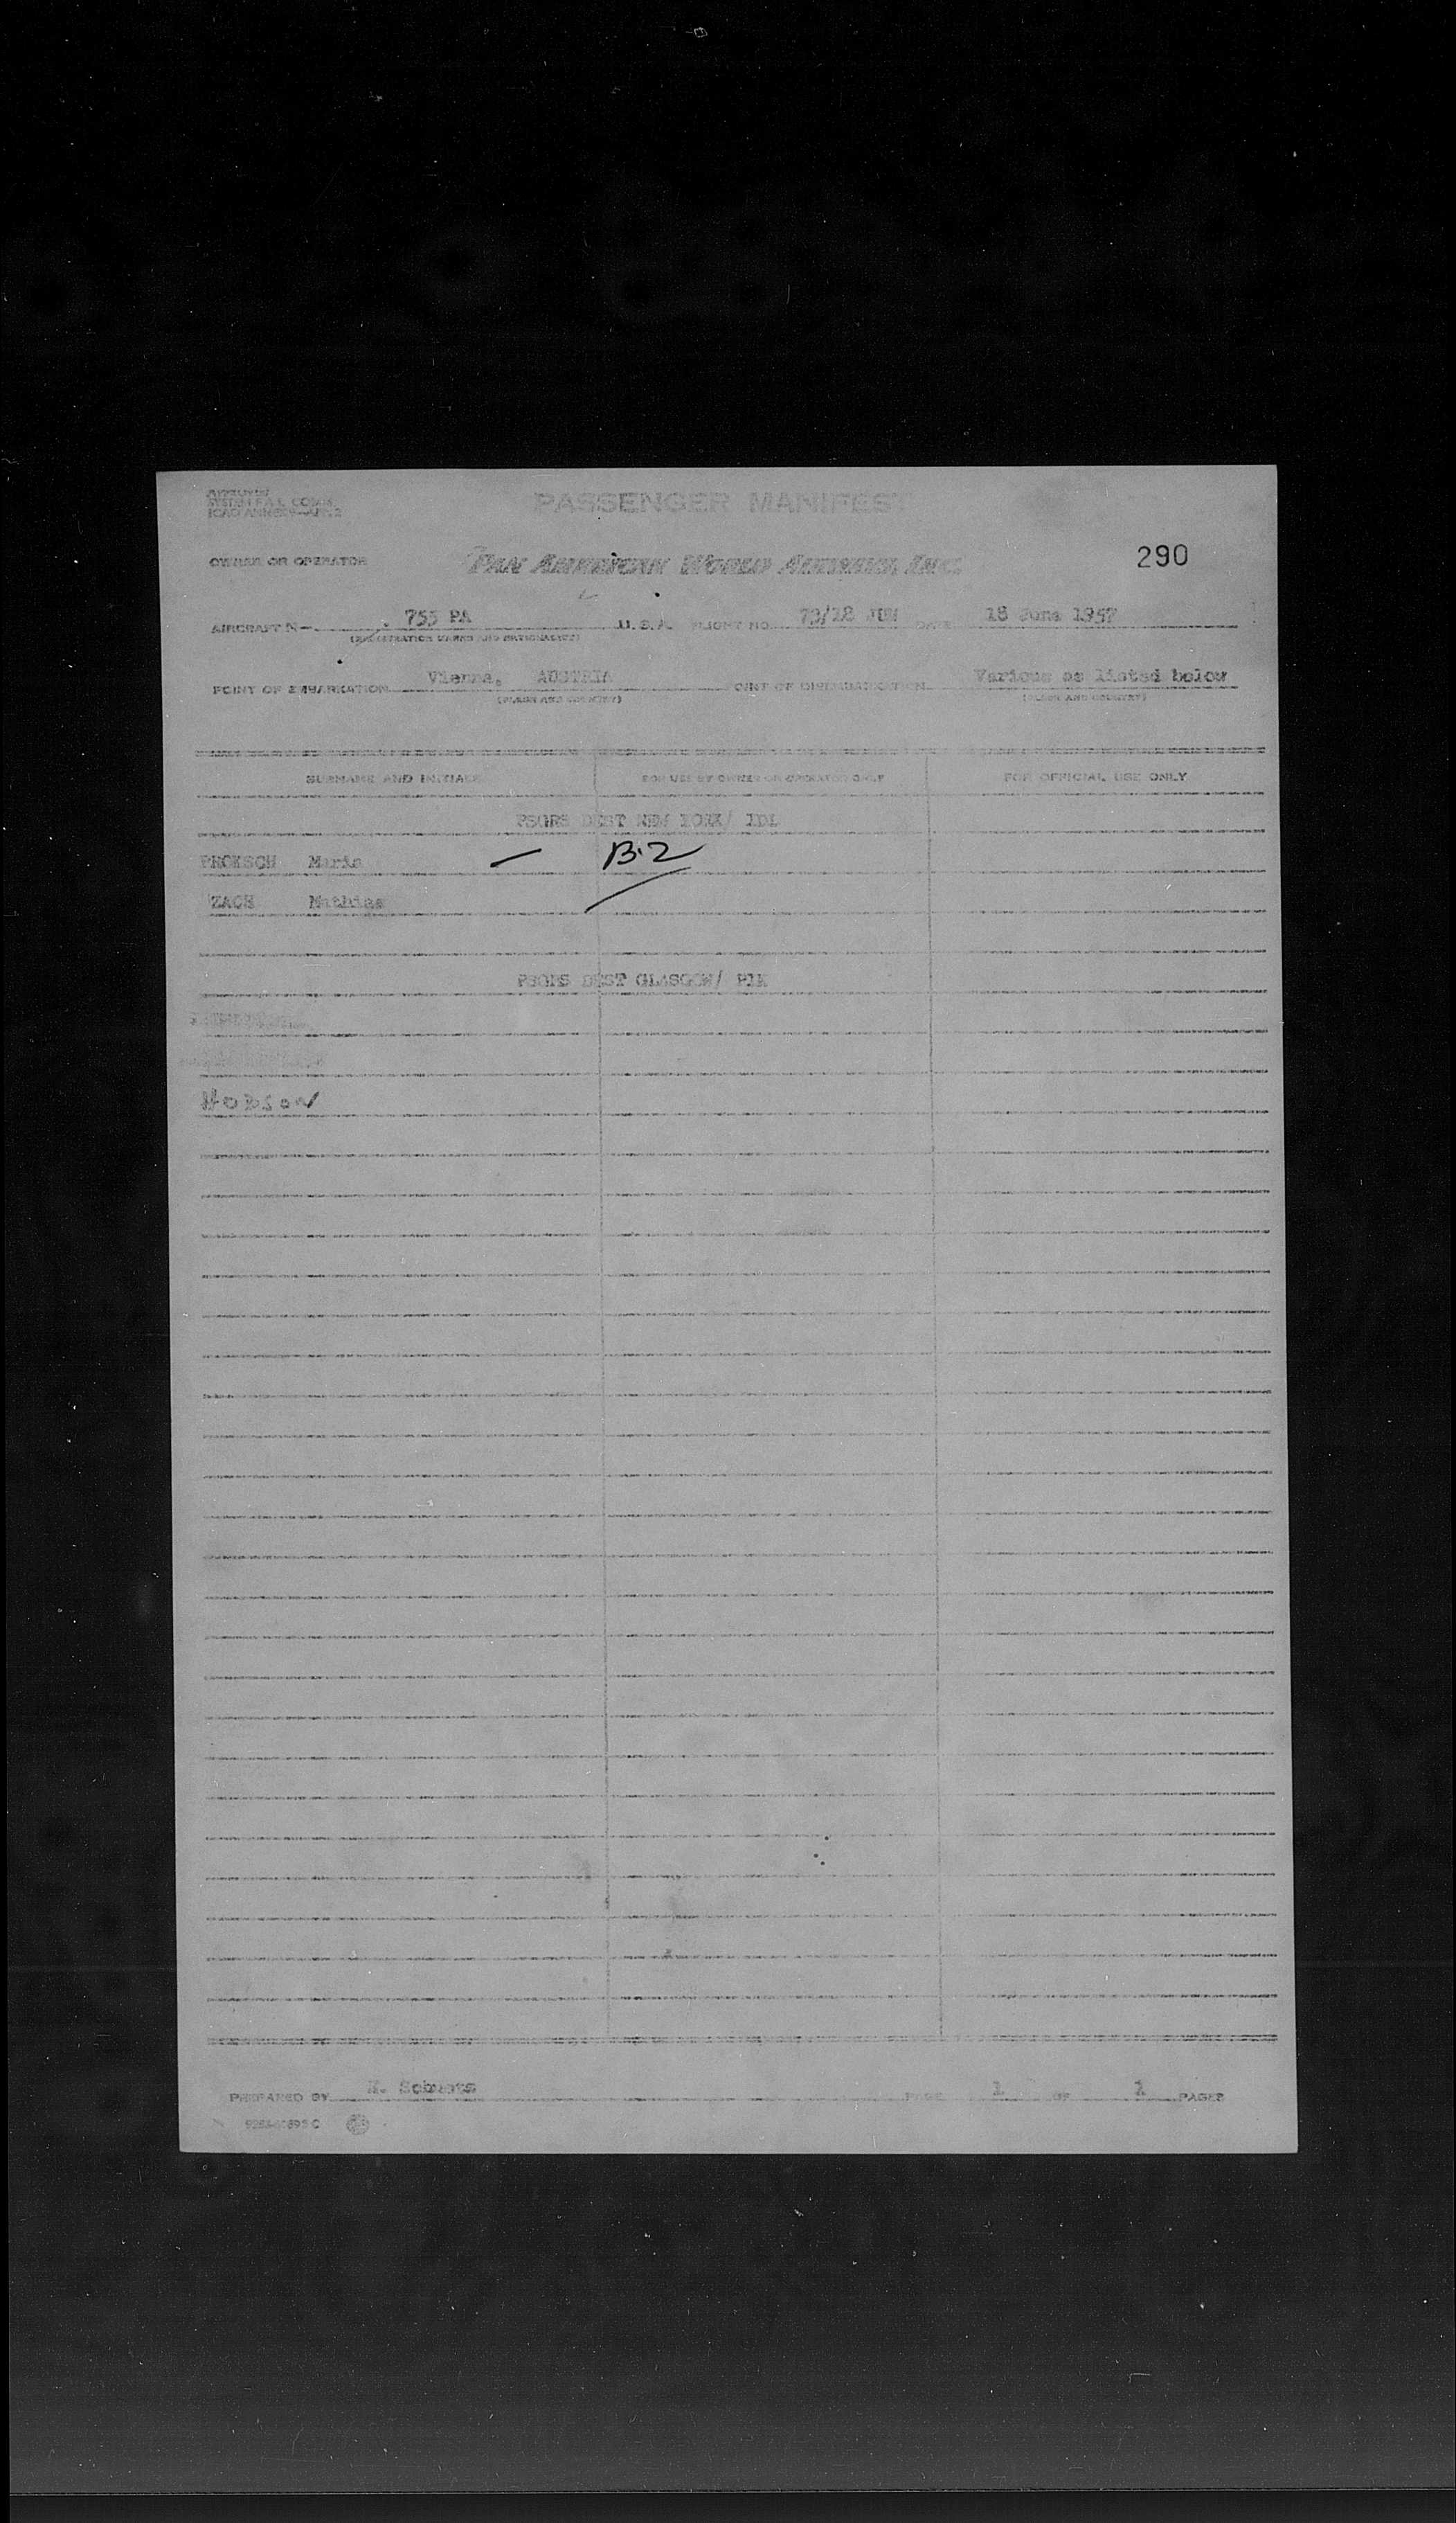 APPROVED
SYSTEM F.A.L. COMM.
ICAO ANNEX 9—APP. 2
PASSENGER MANIFEST
OWNER OR OPERATOR PAN AMERICAN WORLD AIRWAYS, INC. 290
AIRCRAFT N— 755 PA U.S.A. FLIGHT NO. 73/18 JUN DATE 18 June 1957
(REGISTRATION MARKS AND NATIONALITY)
POINT OF EMBARKATION Vienna, AUSTRIA POINT OF DISEMBARKATION Various as listed below
(PLACE AND COUNTRY) (PLACE AND COUNTRY)
SURNAME AND INITIALS FOR USE BY OWNER OR OPERATOR ONLY FOR OFFICIAL USE ONLY
PSGRS DEST NEW YORK/ IDL
PROKSCH Maria — B-2
ZACH Mathias
PSGRS DEST GLASGOW/ PIK
PREPARED BY PAGE 1 OF 1 PAGES